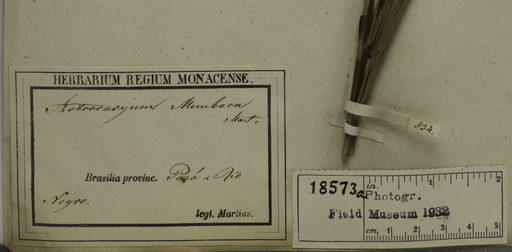 HERBARIUM REGIUM MONACENSE.
Astrocaryum Mumbaca
Mart.
Brasilia provinc. Pará & Rio
Negro.
legt. Martius.
834.
18573a
in. 1 2
Photogr.
Field Museum 1932
cm. 1 2 3 4 5